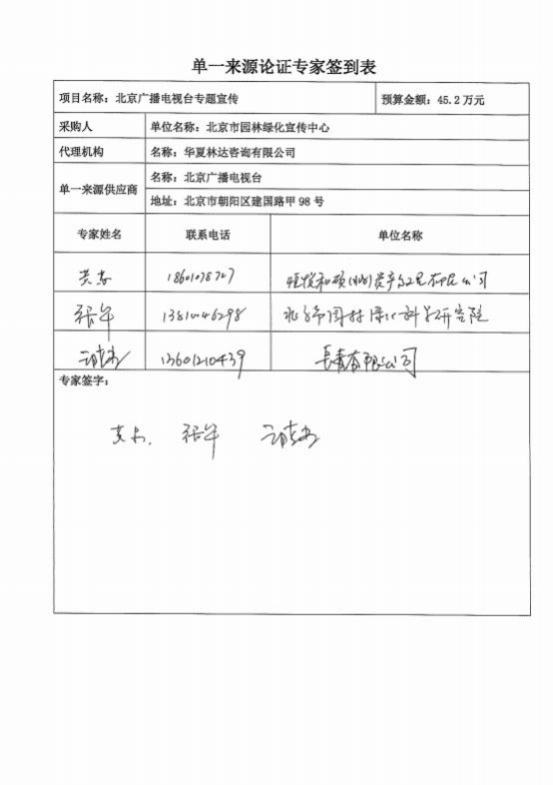 单一来源论证专家签到表
项目名称：北京广播电视台专题宣传 预算金额：45.2 万元
采购人 单位名称：北京市园林绿化宣传中心
代理机构 名称：华夏林达咨询有限公司
单一来源供应商 名称：北京广播电视台
地址：北京市朝阳区建国路甲 98 号
专家姓名 联系电话 单位名称
有限公司
张午 研究院
13601210439 长青有限公司
专家签字：
张午